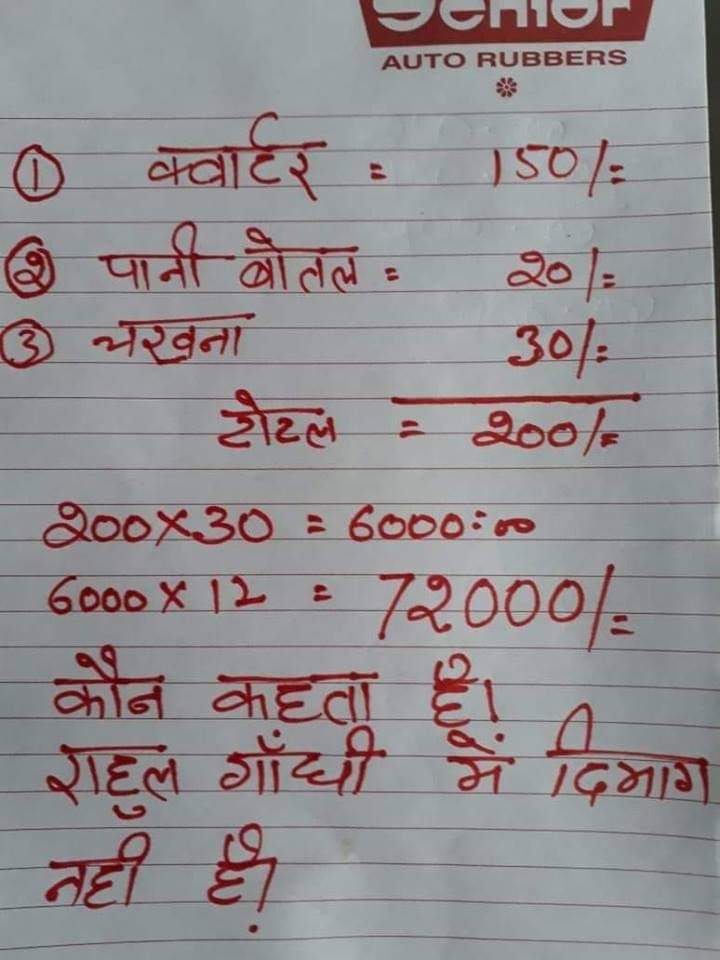 Senior
AUTO RUBBERS
① क्वार्टर = 150/=
② पानी बोतल = 20/=
③ चखना 30/=
टोटल = 200/=
200 X 30 = 6000=00
6000 X 12 = 72000/=
कौन कहता है।
राहुल गाँधी में दिमाग
नही है।